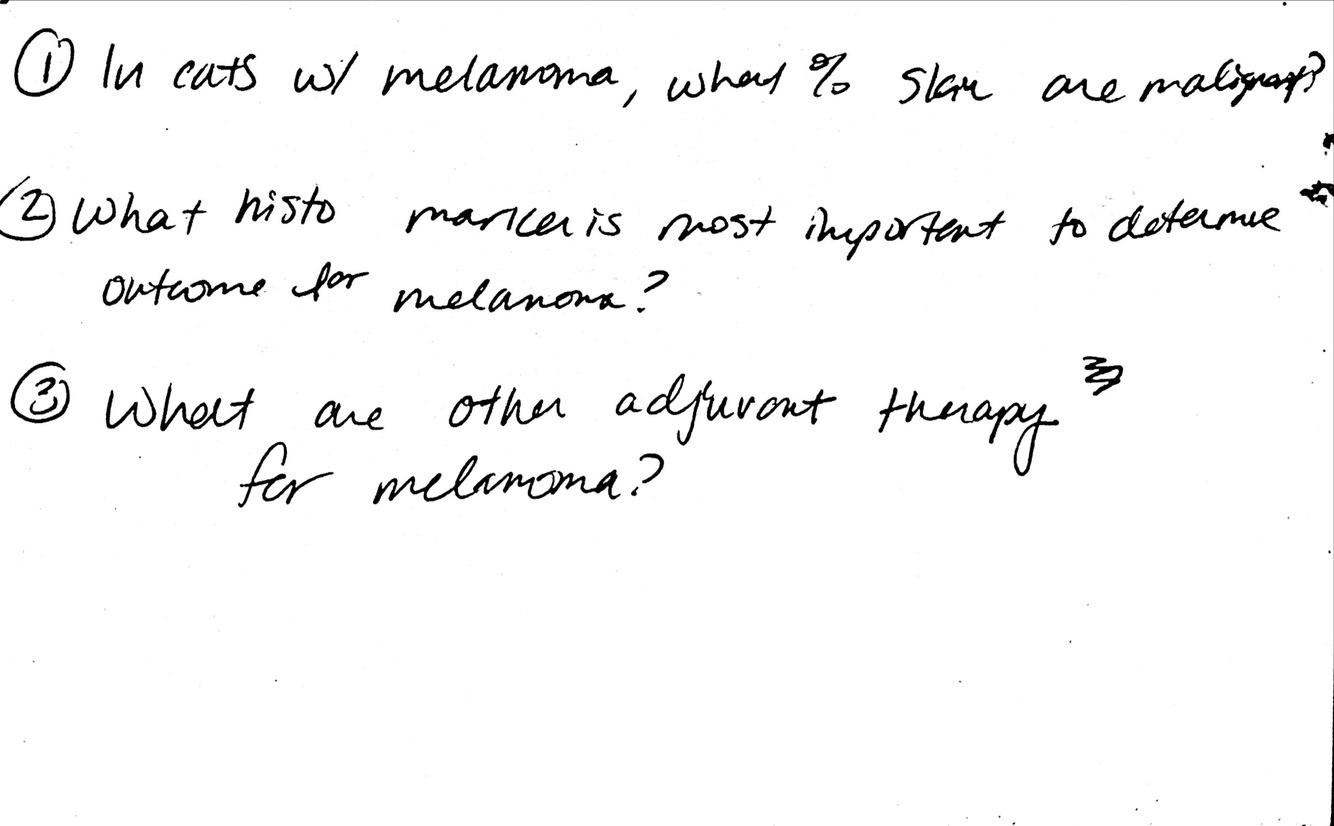 ① In cats w/ melanoma, what % skin are malignant?
② What histo marker is most important to determine
outcome for melanoma?
③ What are other adjuvant therapy
for melanoma?